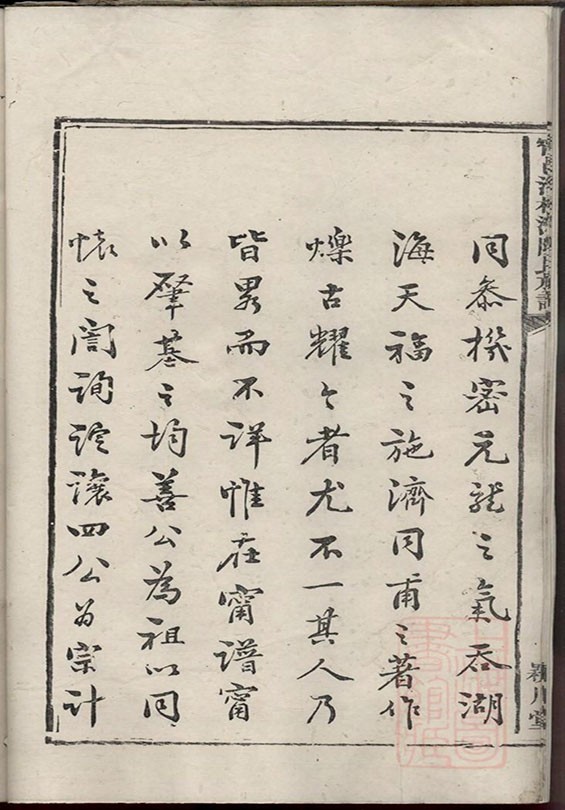 同叅機密元龍之氣吞湖
海天福之施濟同甫之著作
爍古耀今者尤不一其人乃
皆畧而不詳惟在甯譜甯
以肇基之均善公為祖以同
懷之訚詢詮讓四公為宗計
陳氏族譜
潁川堂